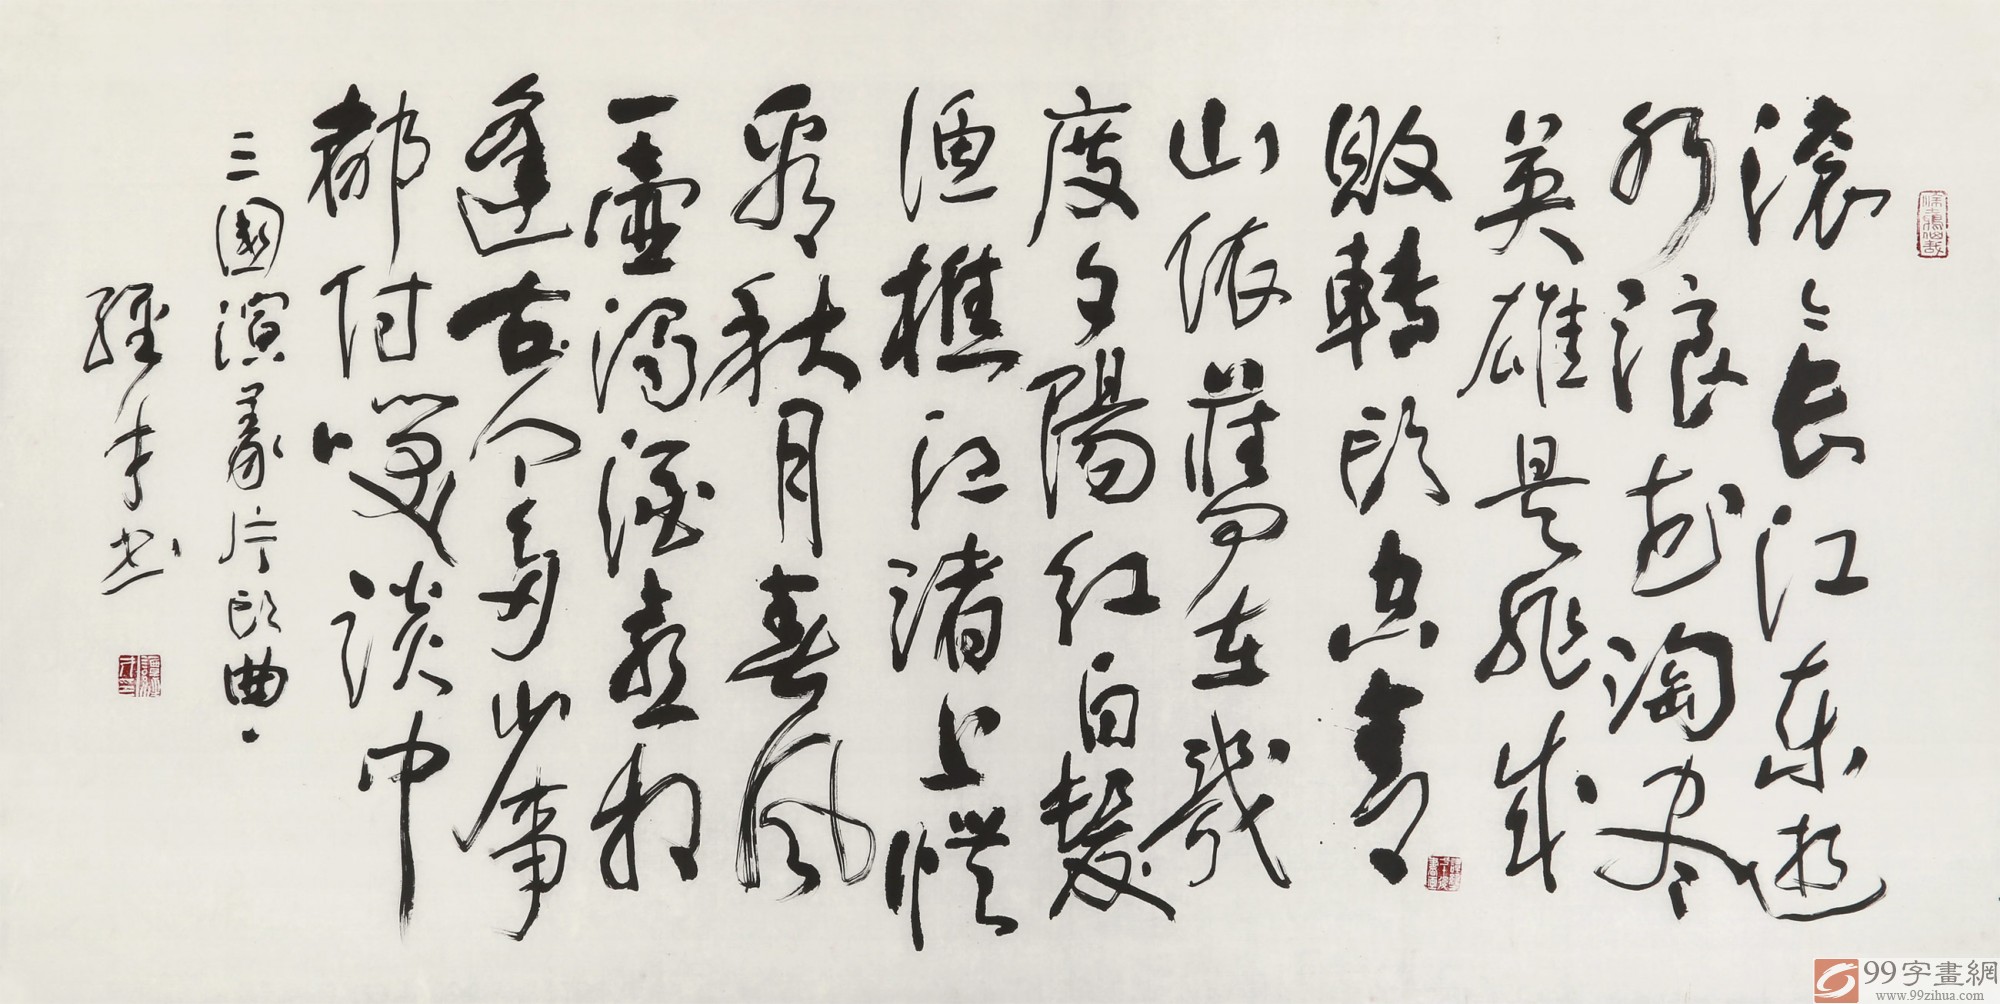 滚〻长江东逝
水浪花淘尽
英雄是非成
败轉頭空青
山依舊在幾
度夕陽红白髮
渔樵江渚上惯
看秋月春风
一壶濁酒喜相
逢古今多少事
都付笑谈中
三國演義片頭曲
經才书
99字畫網
www.99zihua.com